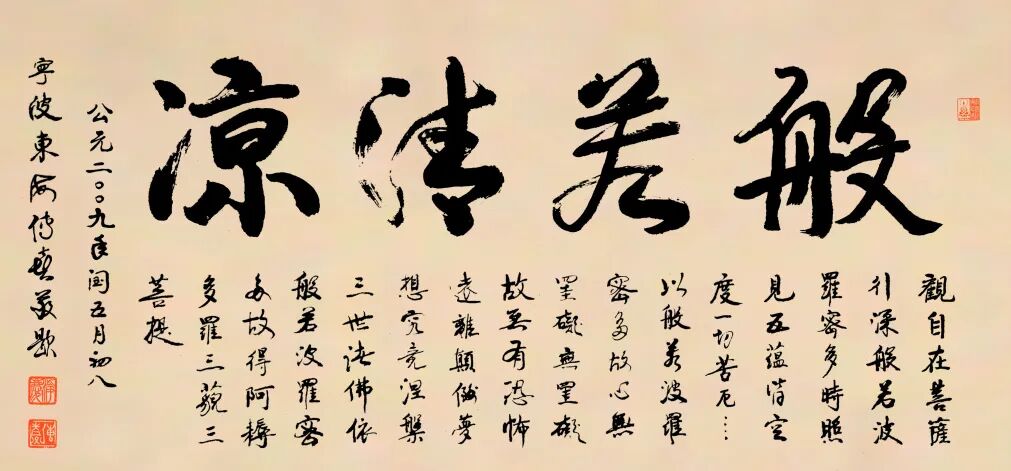 般若清涼
觀自在菩薩
行深般若波
羅密多時照
見五蘊皆空
度一切苦厄…
以般若波羅
密多故心無
罣礙無罣礙
故無有恐怖
遠離顛倒夢
想究竟涅槃
三世諸佛依
般若波羅密
多故得阿耨
多羅三藐三
菩提
公元二〇〇九年閏五月初八
寧波東海傳喜題